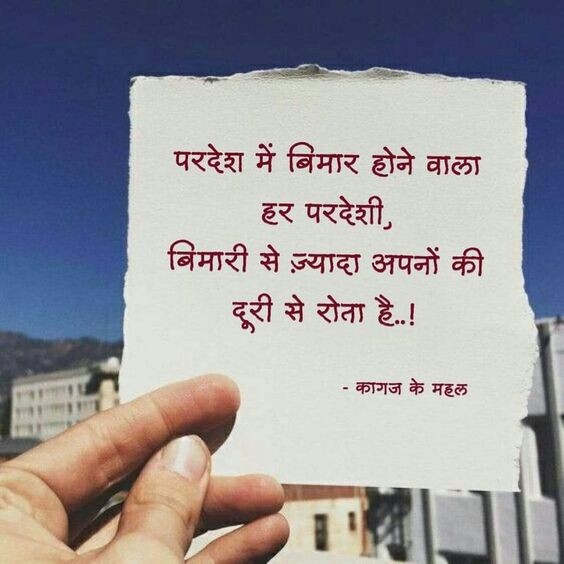 परदेश में बिमार होने वाला
हर परदेशी,
बिमारी से ज़्यादा अपनों की
दूरी से रोता है..!
- कागज के महल